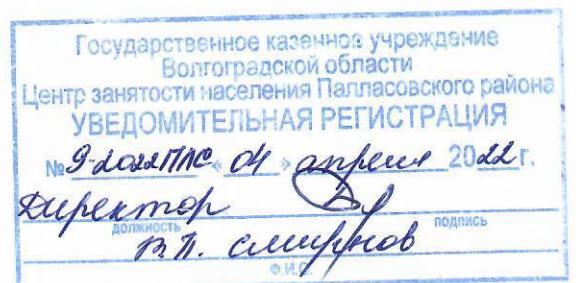 Государственное казенное учреждение
Волгоградской области
Центр занятости населения Палласовского района
УВЕДОМИТЕЛЬНАЯ РЕГИСТРАЦИЯ
№ 9-2022ПЛС « 04 » апреля 2022 г.
Директор
должность подпись
В.П. Смирнов
Ф.И.О.